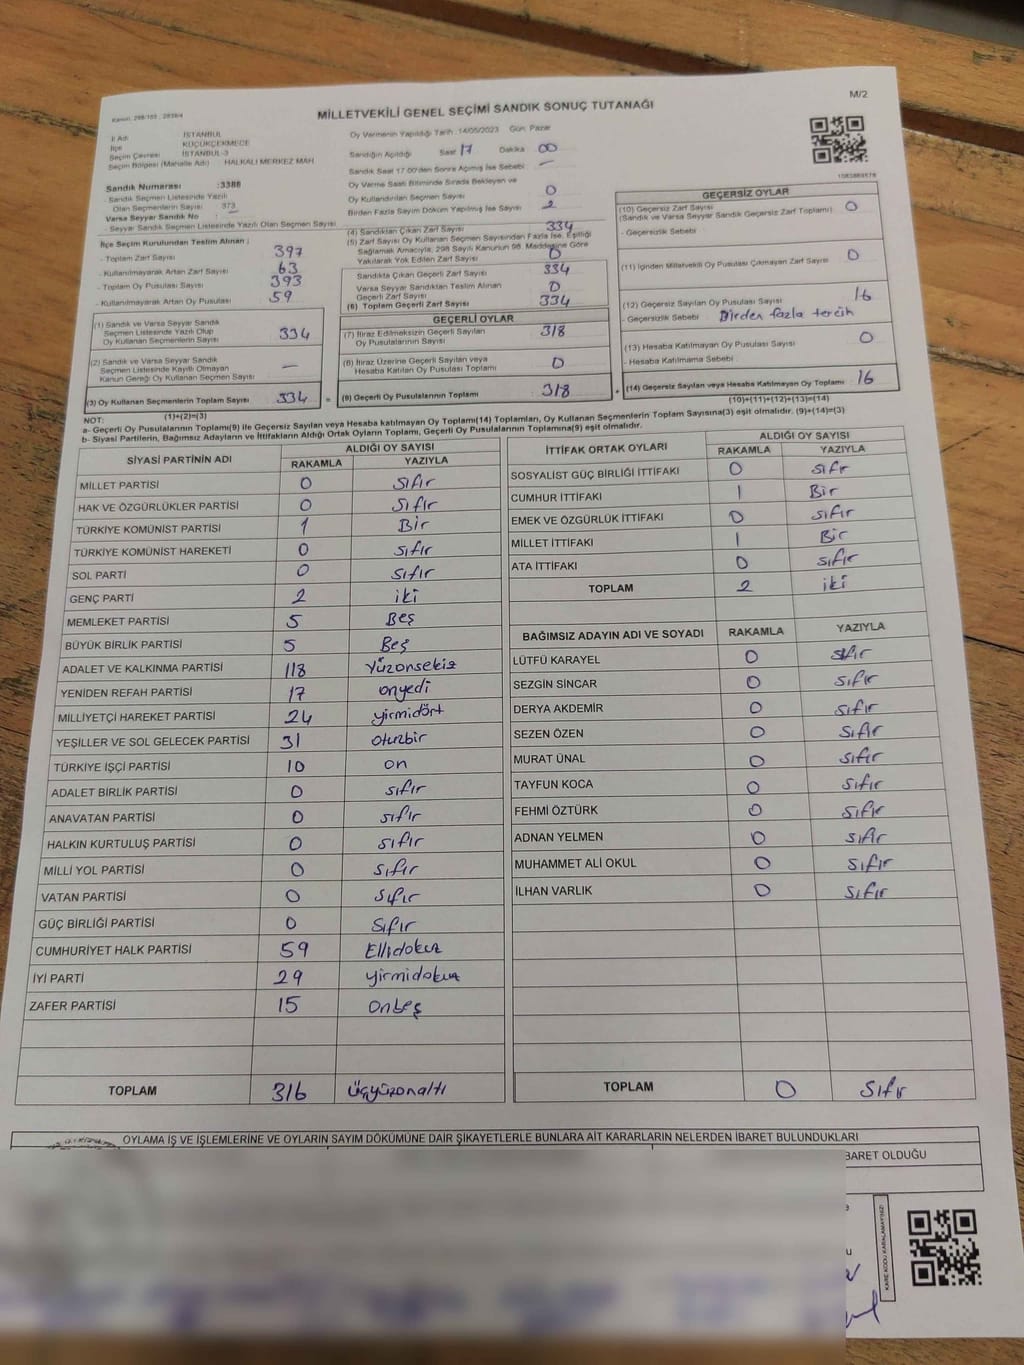 M/2
MİLLETVEKİLİ GENEL SEÇİMİ SANDIK SONUÇ TUTANAĞI
İl Adı : İSTANBUL
İlçe KÜÇÜKÇEKMECE
Seçim Çevresi İSTANBUL-3
Seçim Bölgesi (Mahalle Adı) HALKALI MERKEZ MAH
Sandık Numarası :3388
- Sandık Seçmen Listesinde Yazılı
Olan Seçmenlerin Sayısı 373
Varsa Seyyar Sandık No
- Seyyar Sandık Seçmen Listesinde Yazılı Olan Seçmen Sayısı
İlçe Seçim Kurulundan Teslim Alınan ;
- Toplam Zarf Sayısı 397
- Kullanılmayarak Artan Zarf Sayısı 63
- Toplam Oy Pusulası Sayısı 393
- Kullanılmayarak Artan Oy Pusulası 59
(1) Sandık ve Varsa Seyyar Sandık
Seçmen Listesinde Yazılı Olup
Oy Kullanan Seçmenlerin Sayısı 334
(2) Sandık ve Varsa Seyyar Sandık
Seçmen Listesinde Kayıtlı Olmayan
Kanun Gereği Oy Kullanan Seçmen Sayısı —
(3) Oy Kullanan Seçmenlerin Toplam Sayısı 334
(1)+(2)=(3)
Oy Vermenin Yapıldığı Tarih :14/05/2023 Gün: Pazar
Sandığın Açıldığı Saat 17 Dakika 00
Sandık Saat 17:00'den Sonra Açılmış İse Sebebi —
Oy Verme Saati Bitiminde Sırada Bekleyen ve
Oy Kullandırılan Seçmen Sayısı 0
Birden Fazla Sayım Döküm Yapılmış İse Sayısı 2
(4) Sandıktan Çıkan Zarf Sayısı 334
(5) Zarf Sayısı Oy Kullanan Seçmen Sayısından Fazla İse, Eşitliği
Sağlamak Amacıyla, 298 Sayılı Kanunun 98. Maddesine Göre
Yakılarak Yok Edilen Zarf Sayısı 0
Sandıkta Çıkan Geçerli Zarf Sayısı 334
Varsa Seyyar Sandıktan Teslim Alınan
Geçerli Zarf Sayısı 0
(6) Toplam Geçerli Zarf Sayısı 334
GEÇERLİ OYLAR
(7) İtiraz Edilmeksizin Geçerli Sayılan
Oy Pusulalarının Sayısı 318
(8) İtiraz Üzerine Geçerli Sayılan veya
Hesaba Katılan Oy Pusulası Toplamı 0
= (9) Geçerli Oy Pusulalarının Toplamı 318
GEÇERSİZ OYLAR
(10) Geçersiz Zarf Sayısı 0
(Sandık ve Varsa Seyyar Sandık Geçersiz Zarf Toplamı)
- Geçersizlik Sebebi
(11) İçinden Milletvekili Oy Pusulası Çıkmayan Zarf Sayısı 0
(12) Geçersiz Sayılan Oy Pusulası Sayısı 16
- Geçersizlik Sebebi Birden fazla tercih
(13) Hesaba Katılmayan Oy Pusulası Sayısı 0
- Hesaba Katılmama Sebebi :
+ (14) Geçersiz Sayılan veya Hesaba Katılmayan Oy Toplamı 16
(10)+(11)+(12)+(13)=(14)
NOT:
a- Geçerli Oy Pusulalarının Toplamı(9) ile Geçersiz Sayılan veya Hesaba katılmayan Oy Toplamı(14) Toplamları, Oy Kullanan Seçmenlerin Toplam Sayısına(3) eşit olmalıdır. (9)+(14)=(3)
b- Siyasi Partilerin, Bağımsız Adayların ve İttifakların Aldığı Ortak Oyların Toplamı, Geçerli Oy Pusulalarının Toplamına(9) eşit olmalıdır.
SİYASİ PARTİNİN ADI ALDIĞI OY SAYISI
RAKAMLA YAZIYLA
MİLLET PARTİSİ 0 sıfır
HAK VE ÖZGÜRLÜKLER PARTİSİ 0 sıfır
TÜRKİYE KOMÜNİST PARTİSİ 1 Bir
TÜRKİYE KOMÜNİST HAREKETİ 0 sıfır
SOL PARTİ 0 sıfır
GENÇ PARTİ 2 iki
MEMLEKET PARTİSİ 5 Beş
BÜYÜK BİRLİK PARTİSİ 5 Beş
ADALET VE KALKINMA PARTİSİ 118 Yüzonsekiz
YENİDEN REFAH PARTİSİ 17 onyedi
MİLLİYETÇİ HAREKET PARTİSİ 24 yirmidört
YEŞİLLER VE SOL GELECEK PARTİSİ 31 otuzbir
TÜRKİYE İŞÇİ PARTİSİ 10 on
ADALET BİRLİK PARTİSİ 0 sıfır
ANAVATAN PARTİSİ 0 sıfır
HALKIN KURTULUŞ PARTİSİ 0 sıfır
MİLLİ YOL PARTİSİ 0 sıfır
VATAN PARTİSİ 0 sıfır
GÜÇ BİRLİĞİ PARTİSİ 0 sıfır
CUMHURİYET HALK PARTİSİ 59 Ellidokuz
İYİ PARTİ 29 yirmidokuz
ZAFER PARTİSİ 15 onbeş
TOPLAM 316 üçyüzonaltı
İTTİFAK ORTAK OYLARI ALDIĞI OY SAYISI
RAKAMLA YAZIYLA
SOSYALİST GÜÇ BİRLİĞİ İTTİFAKI 0 sıfır
CUMHUR İTTİFAKI 1 Bir
EMEK VE ÖZGÜRLÜK İTTİFAKI 0 sıfır
MİLLET İTTİFAKI 1 Bir
ATA İTTİFAKI 0 sıfır
TOPLAM 2 iki
BAĞIMSIZ ADAYIN ADI VE SOYADI RAKAMLA YAZIYLA
LÜTFÜ KARAYEL 0 sıfır
SEZGİN SİNCAR 0 sıfır
DERYA AKDEMİR 0 sıfır
SEZEN ÖZEN 0 sıfır
MURAT ÜNAL 0 sıfır
TAYFUN KOCA 0 sıfır
FEHMİ ÖZTÜRK 0 sıfır
ADNAN YELMEN 0 sıfır
MUHAMMET ALİ OKUL 0 sıfır
İLHAN VARLIK 0 sıfır
TOPLAM 0 sıfır
OYLAMA İŞ VE İŞLEMLERİNE VE OYLARIN SAYIM DÖKÜMÜNE DAİR ŞİKAYETLERLE BUNLARA AİT KARARLARIN NELERDEN İBARET BULUNDUKLARI
BARET OLDUĞU
KARE KODU KARALAMAYINIZ!